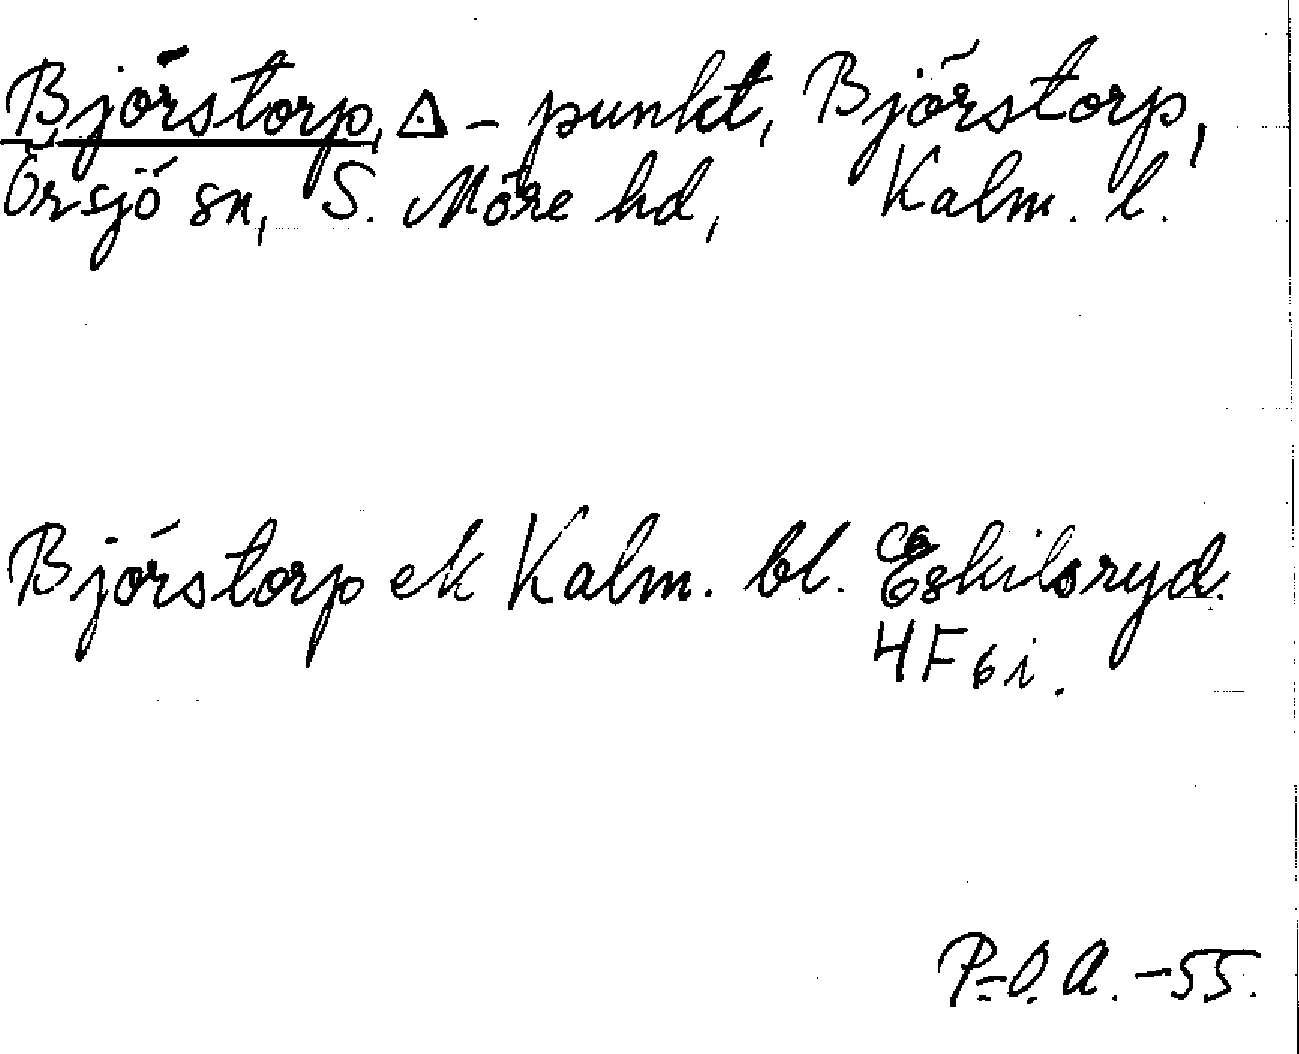 Björstorp, △ - punkt, Björstorp,
Örsjö sn, S. Möre hd, Kalm. l.
Björstorp ek Kalm. bl. Eskilsryd.
4F6i.
P-O.A. -55.